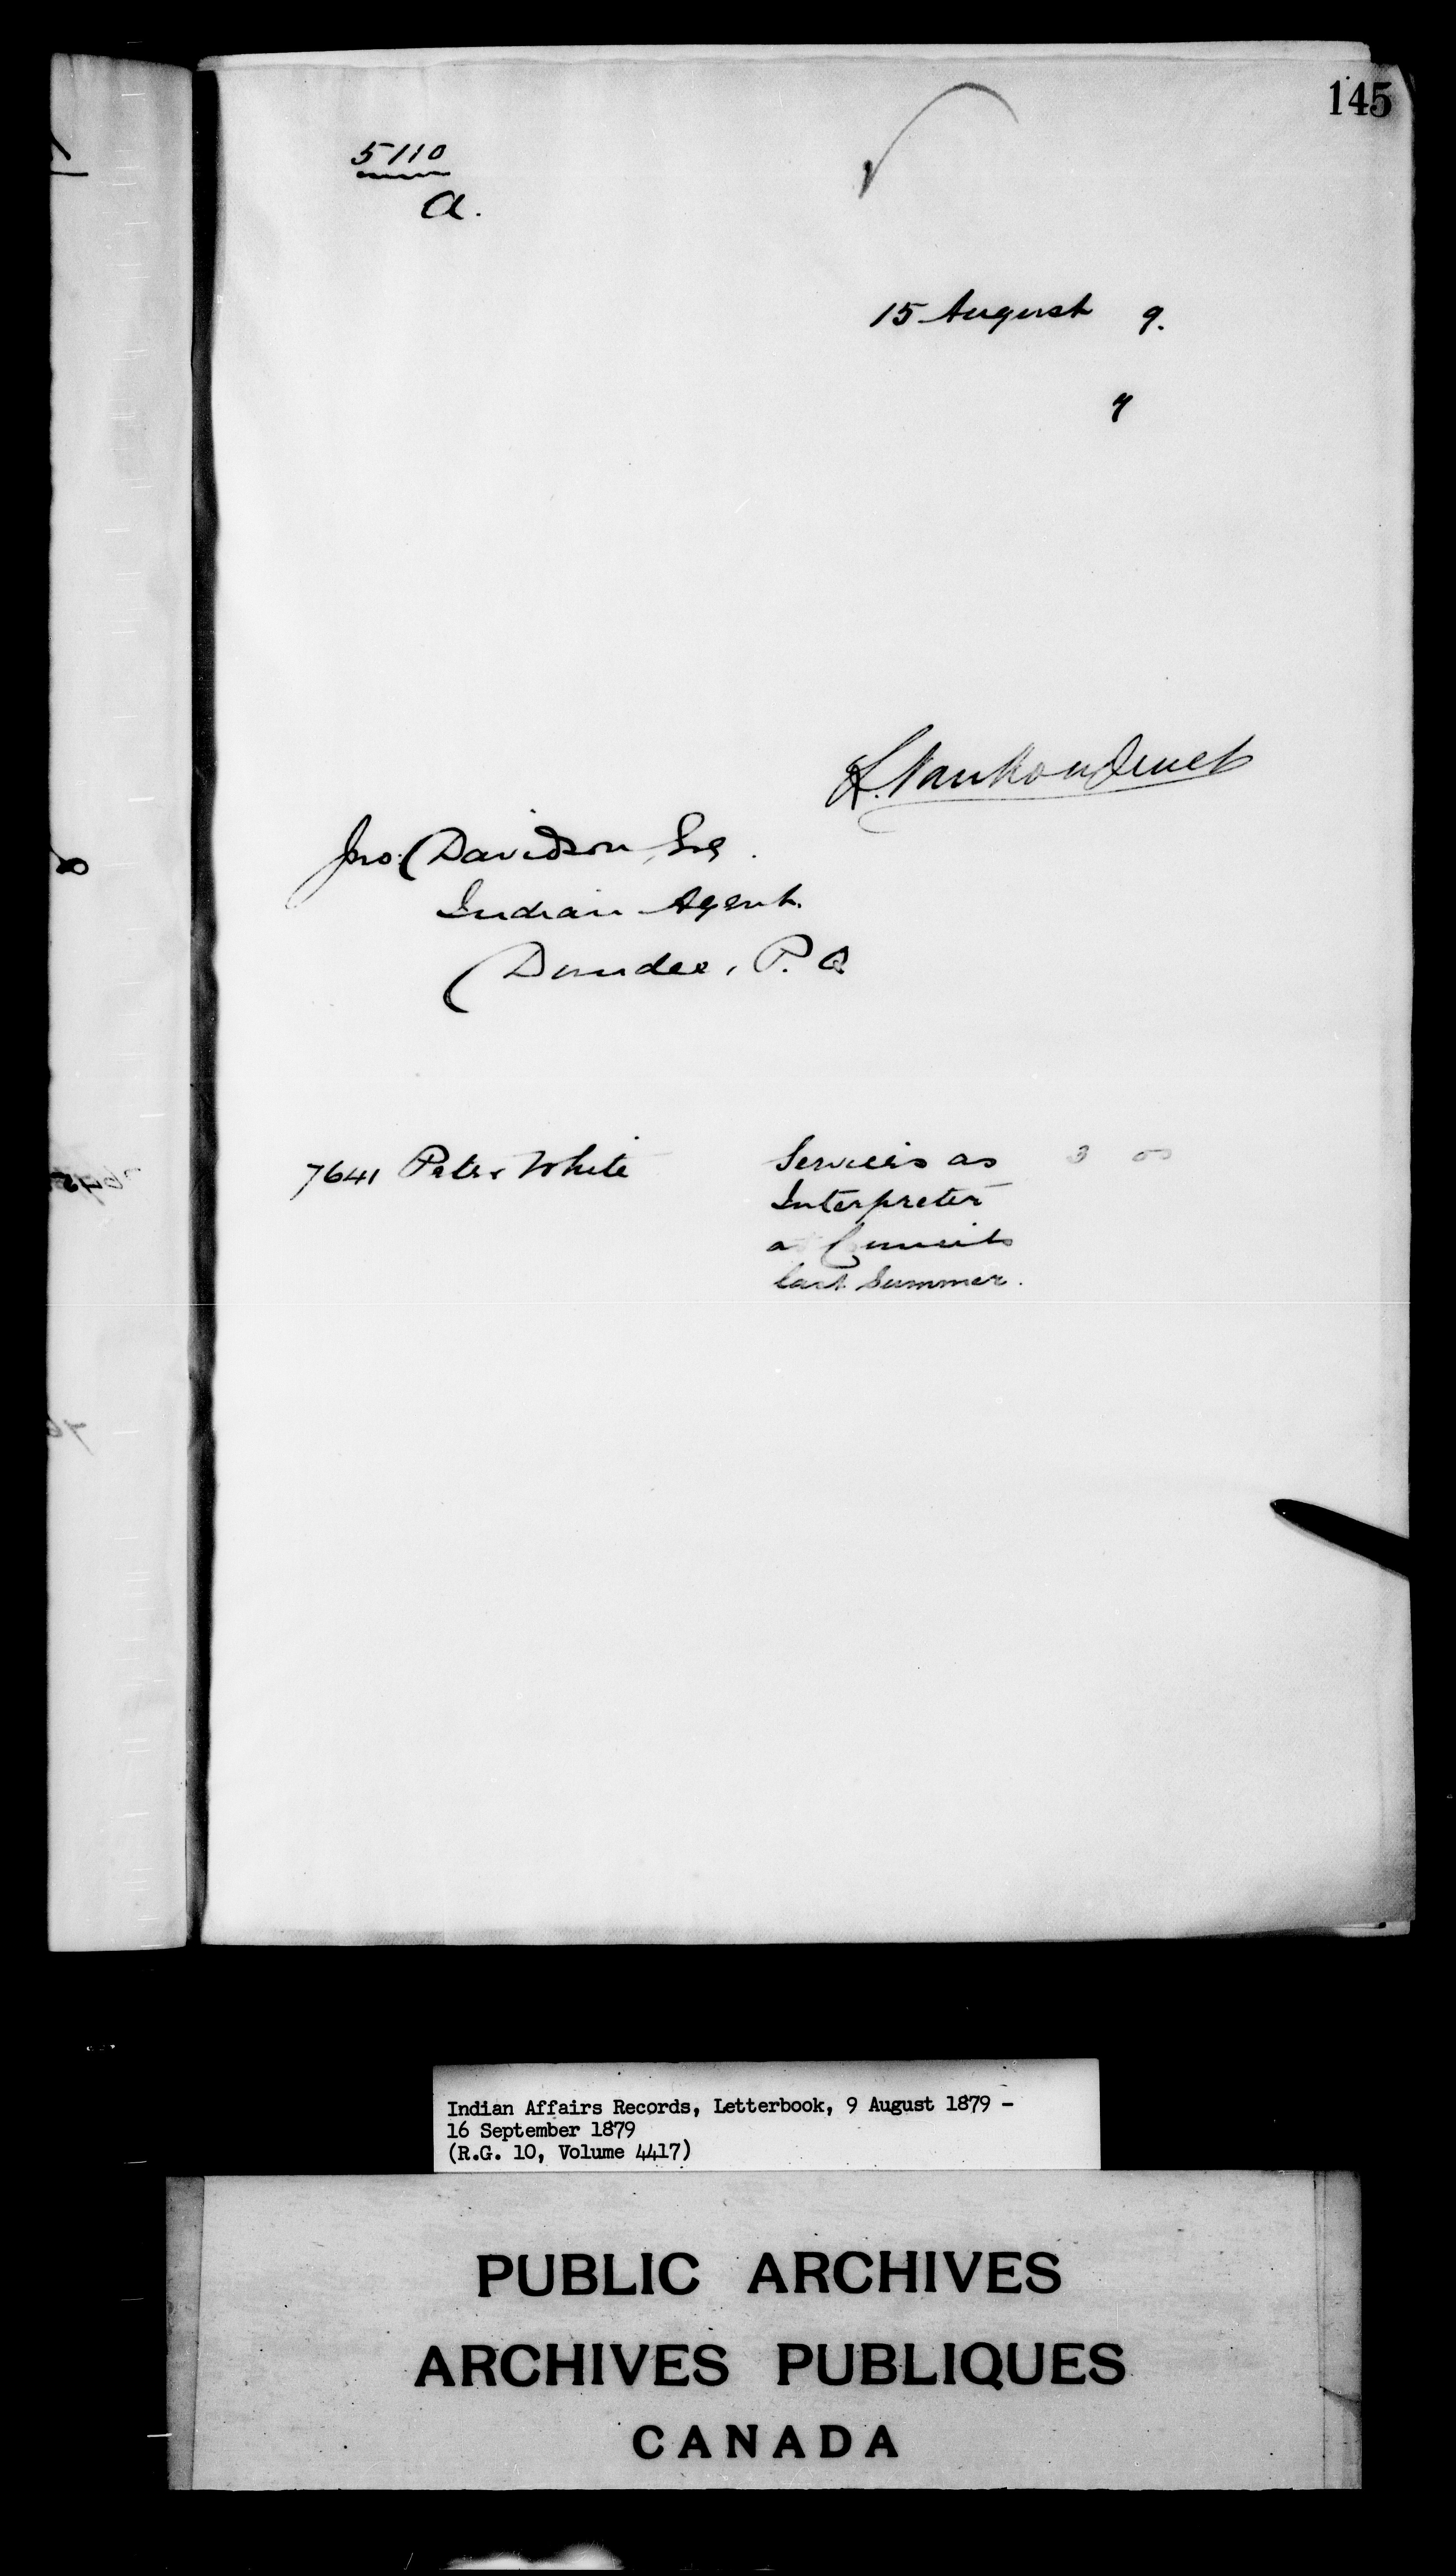 145
5110
a.
15 August 9.
y
L. VanKoughnet
Jno. Davidson Esq.
Indian Agent.
Dundee, P. Q
7641 Peter White Services as 3 00
Interpreter
at Councils
last Summer.
Indian Affairs Records, Letterbook, 9 August 1879 -
16 September 1879
(R.G. 10, Volume 4417)
PUBLIC ARCHIVES
ARCHIVES PUBLIQUES
CANADA